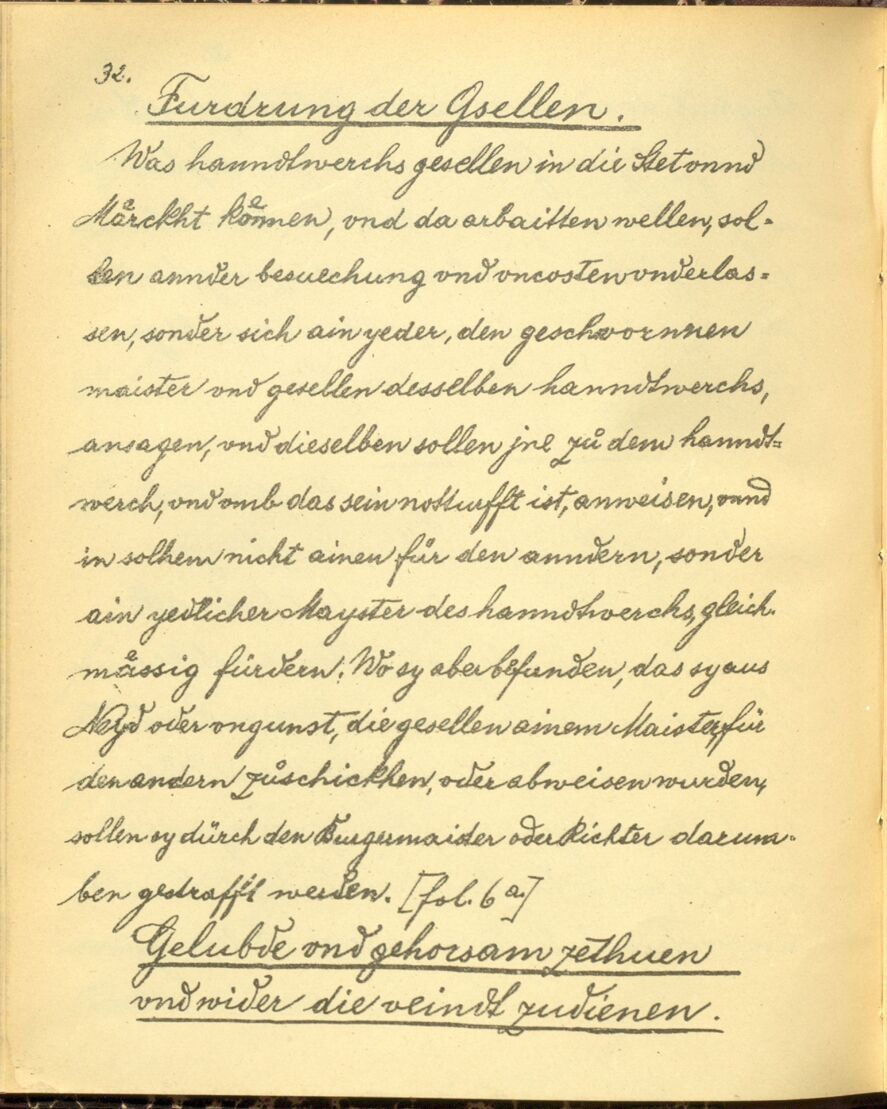 32.
Furdrung der Gsellen.
Was hanndtwerchs gesellen in die Stet vnnd
Märckht kömen, vnd da arbaitten wellen, sol-
len annder besuechung vnd vncosten vnderlas-
sen, sonder sich ain yeder, den geschwornnen
maister vnd gesellen desselben hanndtwerchs,
ansagen, vnd dieselben sollen jne zů dem hanndt-
werch, vnd vmb das sein notturfft ist, anweisen, vnnd
in solhem nicht ainen für den anndern, sonder
ain yedlicher Mayster des hanndtwerchs, gleich-
mässig fürdern. Wo sy aber befunden, das sy aus
Neyd oder vngunst, die gesellen ainem Maister, für
den andern zůschickhen, oder abweisen wurden,
sollen sy dürch den Burgermaister oder Richter darum-
ben gestrafft werden. [fol. 6 a.]
Gelubde vnd gehorsam zethuen
vnd wider die veindt zudienen.